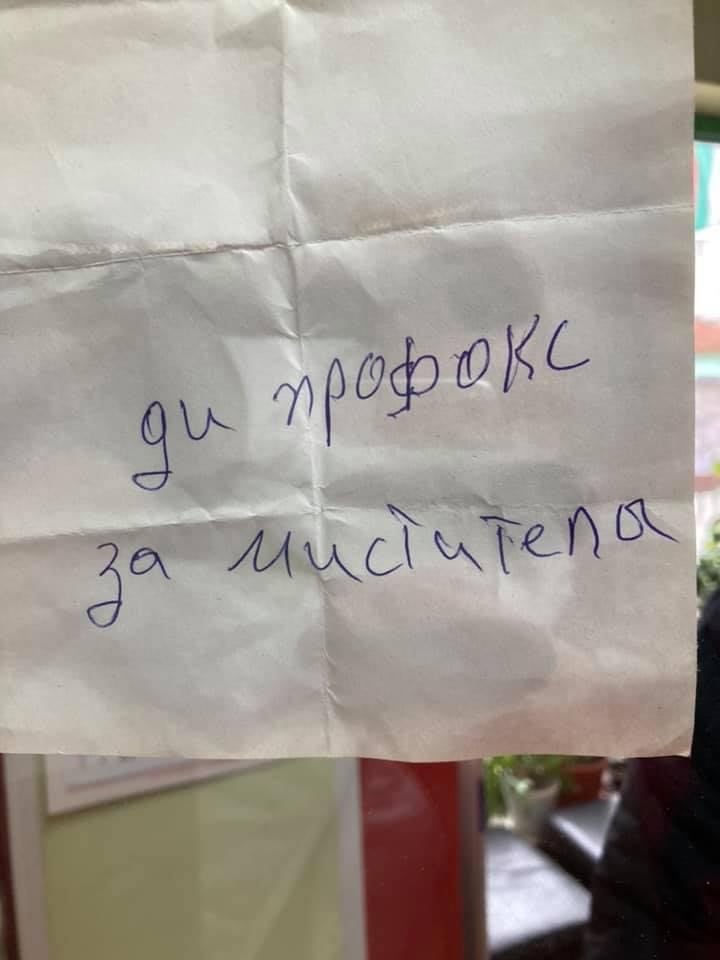 ди профокс
за миститела